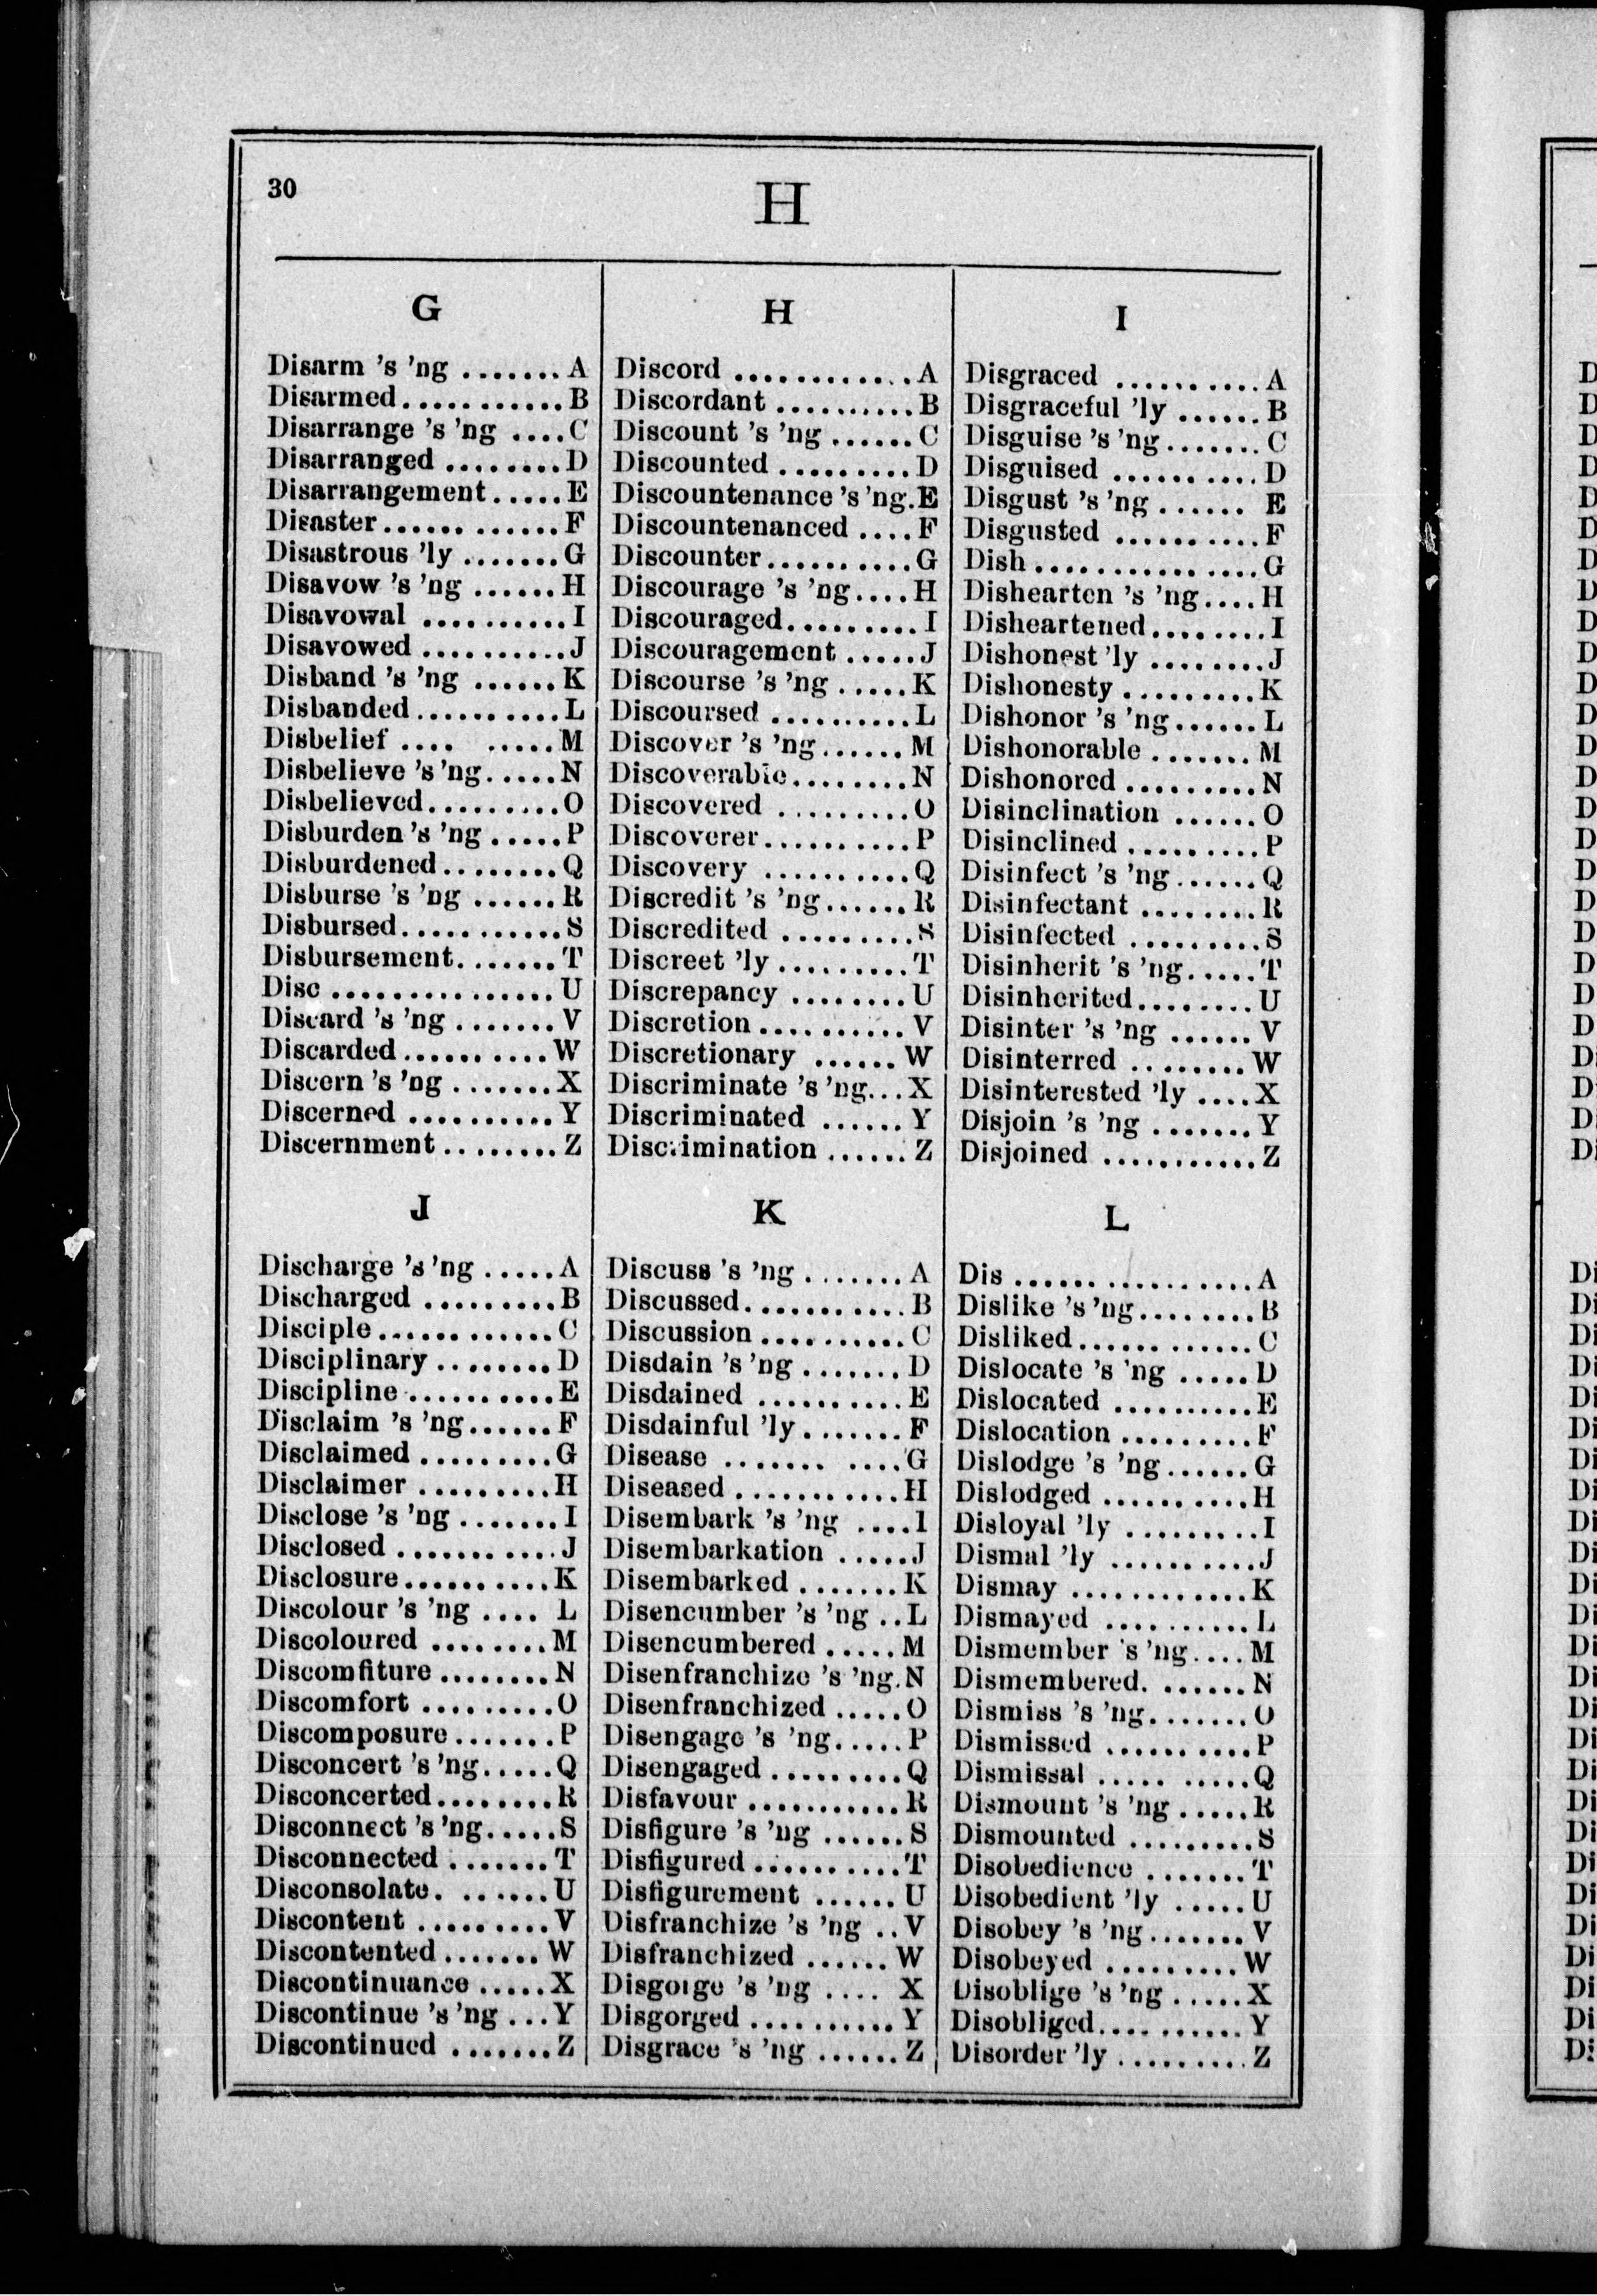 30
H
G
Disarm 's 'ng ....... A
Disarmed ........... B
Disarrange 's 'ng .... C
Disarranged ........ D
Disarrangement ..... E
Disaster ............ F
Disastrous 'ly ....... G
Disavow 's 'ng ...... H
Disavowal .......... I
Disavowed .......... J
Disband 's 'ng ...... K
Disbanded .......... L
Disbelief .... ..... M
Disbelieve 's 'ng ..... N
Disbelieved ......... O
Disburden 's 'ng ..... P
Disburdened ........ Q
Disburse 's 'ng ...... R
Disbursed ........... S
Disbursement ....... T
Disc ............... U
Discard 's 'ng ....... V
Discarded .......... W
Discern 's 'ng ....... X
Discerned .......... Y
Discernment ........ Z
H
Discord ............ A
Discordant .......... B
Discount 's 'ng ...... C
Discounted ......... D
Discountenance 's 'ng . E
Discountenanced .... F
Discounter .......... G
Discourage 's 'ng .... H
Discouraged ......... I
Discouragement ..... J
Discourse 's 'ng ..... K
Discoursed .......... L
Discover 's 'ng ...... M
Discoverable ........ N
Discovered ......... O
Discoverer .......... P
Discovery .......... Q
Discredit 's 'ng ...... R
Discredited ......... S
Discreet 'ly ......... T
Discrepancy ........ U
Discretion .......... V
Discretionary ...... W
Discriminate 's 'ng ... X
Discriminated ...... Y
Discrimination ...... Z
I
Disgraced .......... A
Disgraceful 'ly ...... B
Disguise 's 'ng ....... C
Disguised .......... D
Disgust 's 'ng ...... E
Disgusted .......... F
Dish ............... G
Dishearten 's 'ng .... H
Disheartened ........ I
Dishonest 'ly ........ J
Dishonesty ......... K
Dishonor 's 'ng ...... L
Dishonorable ....... M
Dishonored ......... N
Disinclination ...... O
Disinclined ......... P
Disinfect 's 'ng ...... Q
Disinfectant ........ R
Disinfected ......... S
Disinherit 's 'ng ..... T
Disinherited ........ U
Disinter 's 'ng ...... V
Disinterred ........ W
Disinterested 'ly .... X
Disjoin 's 'ng ....... Y
Disjoined ........... Z
J
Discharge 's 'ng ..... A
Discharged ......... B
Disciple ............ C
Disciplinary ........ D
Discipline .......... E
Disclaim 's 'ng ...... F
Disclaimed ......... G
Disclaimer ......... H
Disclose 's 'ng ....... I
Disclosed ........... J
Disclosure .......... K
Discolour 's 'ng .... L
Discoloured ........ M
Discomfiture ........ N
Discomfort ......... O
Discomposure ....... P
Disconcert 's 'ng ..... Q
Disconcerted ........ R
Disconnect 's 'ng ..... S
Disconnected ....... T
Disconsolate . ...... U
Discontent ......... V
Discontented ....... W
Discontinuance ..... X
Discontinue 's 'ng ... Y
Discontinued ....... Z
K
Discuss 's 'ng ....... A
Discussed ........... B
Discussion .......... C
Disdain 's 'ng ....... D
Disdained .......... E
Disdainful 'ly ....... F
Disease ....... .... G
Diseased ........... H
Disembark 's 'ng .... I
Disembarkation ..... J
Disembarked ....... K
Disencumber 's 'ng .. L
Disencumbered ..... M
Disenfranchize 's 'ng . N
Disenfranchized ..... O
Disengage 's 'ng ..... P
Disengaged ......... Q
Disfavour ........... R
Disfigure 's 'ng ...... S
Disfigured .......... T
Disfigurement ...... U
Disfranchize 's 'ng .. V
Disfranchized ...... W
Disgorge 's 'ng .... X
Disgorged .......... Y
Disgrace 's 'ng ...... Z
L
Dis ................ A
Dislike 's 'ng ........ B
Disliked ............ C
Dislocate 's 'ng ..... D
Dislocated .......... E
Dislocation ......... F
Dislodge 's 'ng ...... G
Dislodged .......... H
Disloyal 'ly ......... I
Dismal 'ly .......... J
Dismay ............ K
Dismayed .......... L
Dismember 's 'ng .... M
Dismembered. ...... N
Dismiss 's 'ng ....... O
Dismissed .......... P
Dismissal ..... ..... Q
Dismount 's 'ng ..... R
Dismounted ......... S
Disobedience ....... T
Disobedient 'ly ..... U
Disobey 's 'ng ....... V
Disobeyed ......... W
Disoblige 's 'ng ..... X
Disobliged .......... Y
Disorder 'ly ......... Z